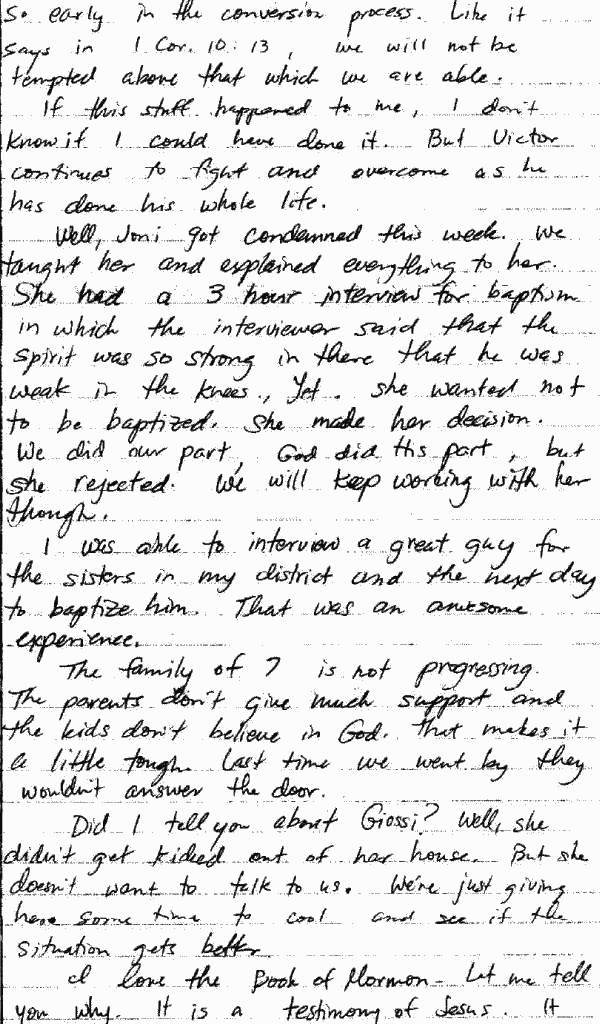 So early in the conversion process. Like it
says in 1 Cor. 10:13, we will not be
tempted above that which we are able.
If this stuff happened to me, I don't
know if I could have done it. But Victor
continues to fight and overcome as he
has done his whole life.
Well, Joni got condemned this week. We
taught her and explained everything to her.
She had a 3 hour interview for baptism
in which the interviewer said that the
spirit was so strong in there that he was
weak in the knees., Yet. she wanted not
to be baptized. She made her decision.
We did our part, God did His part, but
she rejected. We will keep working with her
though.
I was able to interview a great guy for
the sisters in my district and the next day
to baptize him. That was an awesome
experience.
The family of 7 is not progressing.
The parents don't give much support and
the kids don't believe in God. That makes it
a little tough. Last time we went by they
wouldn't answer the door.
Did I tell you about Giossi? Well, she
didn't get kicked out of her house. But she
doesn't want to talk to us. We're just giving
here some time to cool and see if the
situation gets better.
I love the Book of Mormon - Let me tell
you why. It is a testimony of Jesus. It